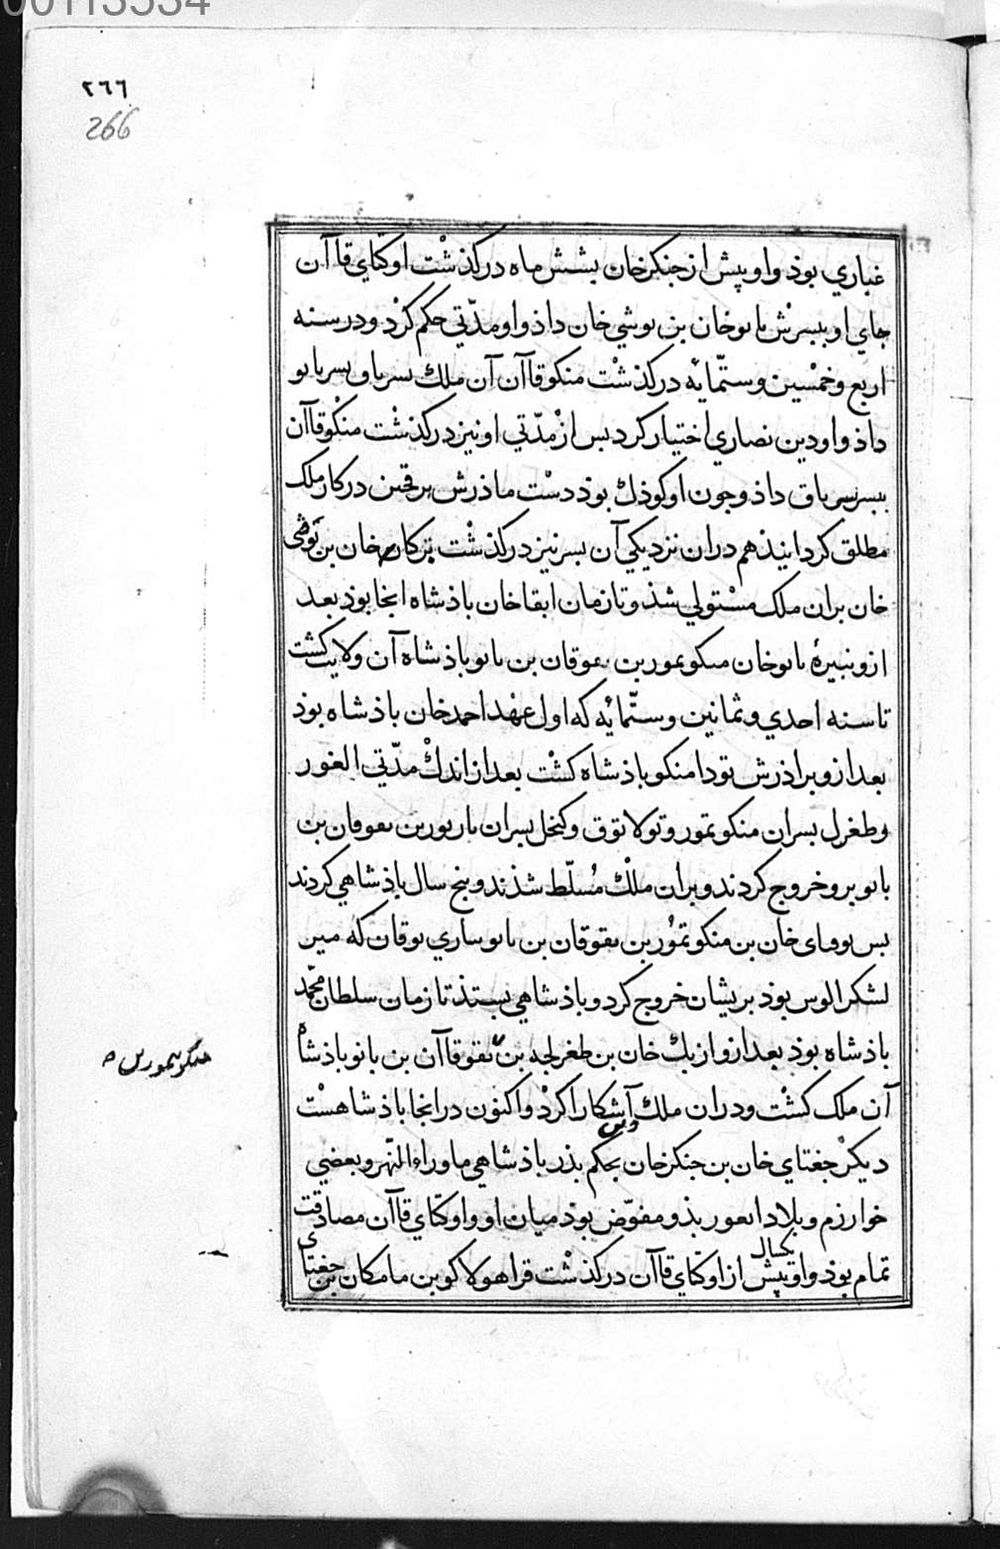 00113534
٢٦٦
266
غباري بوذ واو پيش از جنكزخان بشش ماه دركذشت اوكتاي قاآن
جاي او ببسرش باتوخان بن توشي خان داذ واو مدّتي حكم كرد ودر سنه
اربع وخمسين وستّمايه دركذشت منكوقاآن آن ملك بسرتاو بسر باتو
داذ واو دين نصاري اختيار كرد بس از مدّتي او نيز دركذشت منكوقاآن
ببسر سرتاق داذ وجون او كوذك بوذ دست ماذرش برقجين در كار ملك
مطلق كردانيذ هم دران نزديكي آن بسر نيز دركذشت بركاي خان بن توشي
خان بران ملك مستولي شذ وتا زمان ابقا خان باذشاه انجا بوذ بعد
ازو نبيرهٔ باتوخان منكوتمور بن توقان بن باتو باذشاه آن ولايت كشت
تا سنه احدي وثمانين وستّمايه كه اول عهد احمد خان باذشاه بوذ
بعد ازو براذرش تودامنكو باذشاه كشت بعد از اندك مدّتي الغور
وطغرل بسران منكوتمور وتولاتوق وكنجك بسران تاربور بن توقان بن
باتو برو خروج كردند وبران ملك مسلّط شذند وبنج سال باذشاهي كردند
بس توقتاي خان بن منكوتمور بن توقوقان بن باتو بياري نوقان كه مير
لشكر الوس بوذ بريشان خروج كرد وباذشاهي بستذ تا زمان سلطان محمّد
باذشاه بوذ بعد ازو ازبك خان بن طغرلجه بن توقوقاآن بن باتو باذشاه
منكوتيمور بن
آن ملك كشت ودران ملك دين آشكارا كرد واكنون درانجا باذشاهست
ديكر جغتاي خان بن جنكزخان بحكم بذر باذشاهي ماوراءالنهر وبعضي
خوارزم وبلاد ايغور بذو مفوّض بوذ ميان او واوكتاي قاآن مصادقت
تمام بوذ واو بيكسال پيش از اوكتاي قاآن دركذشت قراهولاكو بن مامكان بن جغتاي